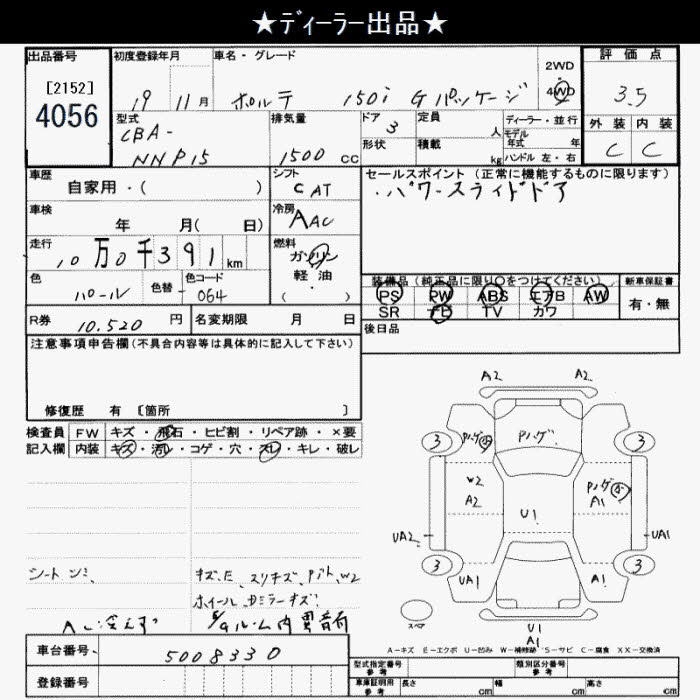 ★ディーラー出品★
出品番号
[2152]
4056
初度登録年月
19 11月
車名・グレード
ポルテ 150i Gパッケージ
2WD
4WD
評価点
3.5
外装 内装
C C
型式
CBA-
NNP15
排気量
1500 CC
ドア
3
形状
定員
人
積載
kg
ディーラー・並行
モデル
年式 年
ハンドル 左・右
車歴
自家用・( )
シフト
CAT
セールスポイント (正常に機能するものに限ります)
・パワースライドドア
車検
年 月( 日)
冷房
AAC
走行
10万0千391km
燃料
ガソリン
軽油
( )
色
パール
色替
色コード
064
装備品 (純正品に限り○をつけてください)
PS PW ABS エアB AW
SR ナビ TV カワ
新車保証書
有・無
R券 10.520 円
名変期限 月 日
後日品
注意事項申告欄(不具合内容等は具体的に記入して下さい)
修復歴 有 [箇所 ]
検査員
記入欄
FW キズ・飛石・ヒビ割・リペア跡・×要
内装 キズ・汚レ・コゲ・穴・スレ・キレ・破レ
シートシミ、
キズ.E、スリキズ、
W2
A2 A2
3 3
Pハゲ
Pハゲ
Pハゲ
W2
A2
A1
U1
UA2 UA1
3 3
UA1 A1
スペア
U1
A1
A-キズ E-エクボ U-凹み W-補修跡 S-サビ C-腐食 XX-交換済
車台番号 5008330
登録番号
型式指定番号
参考
類別区分番号
参考
車庫証明用
参考
長さ cm 幅 cm 高さ cm